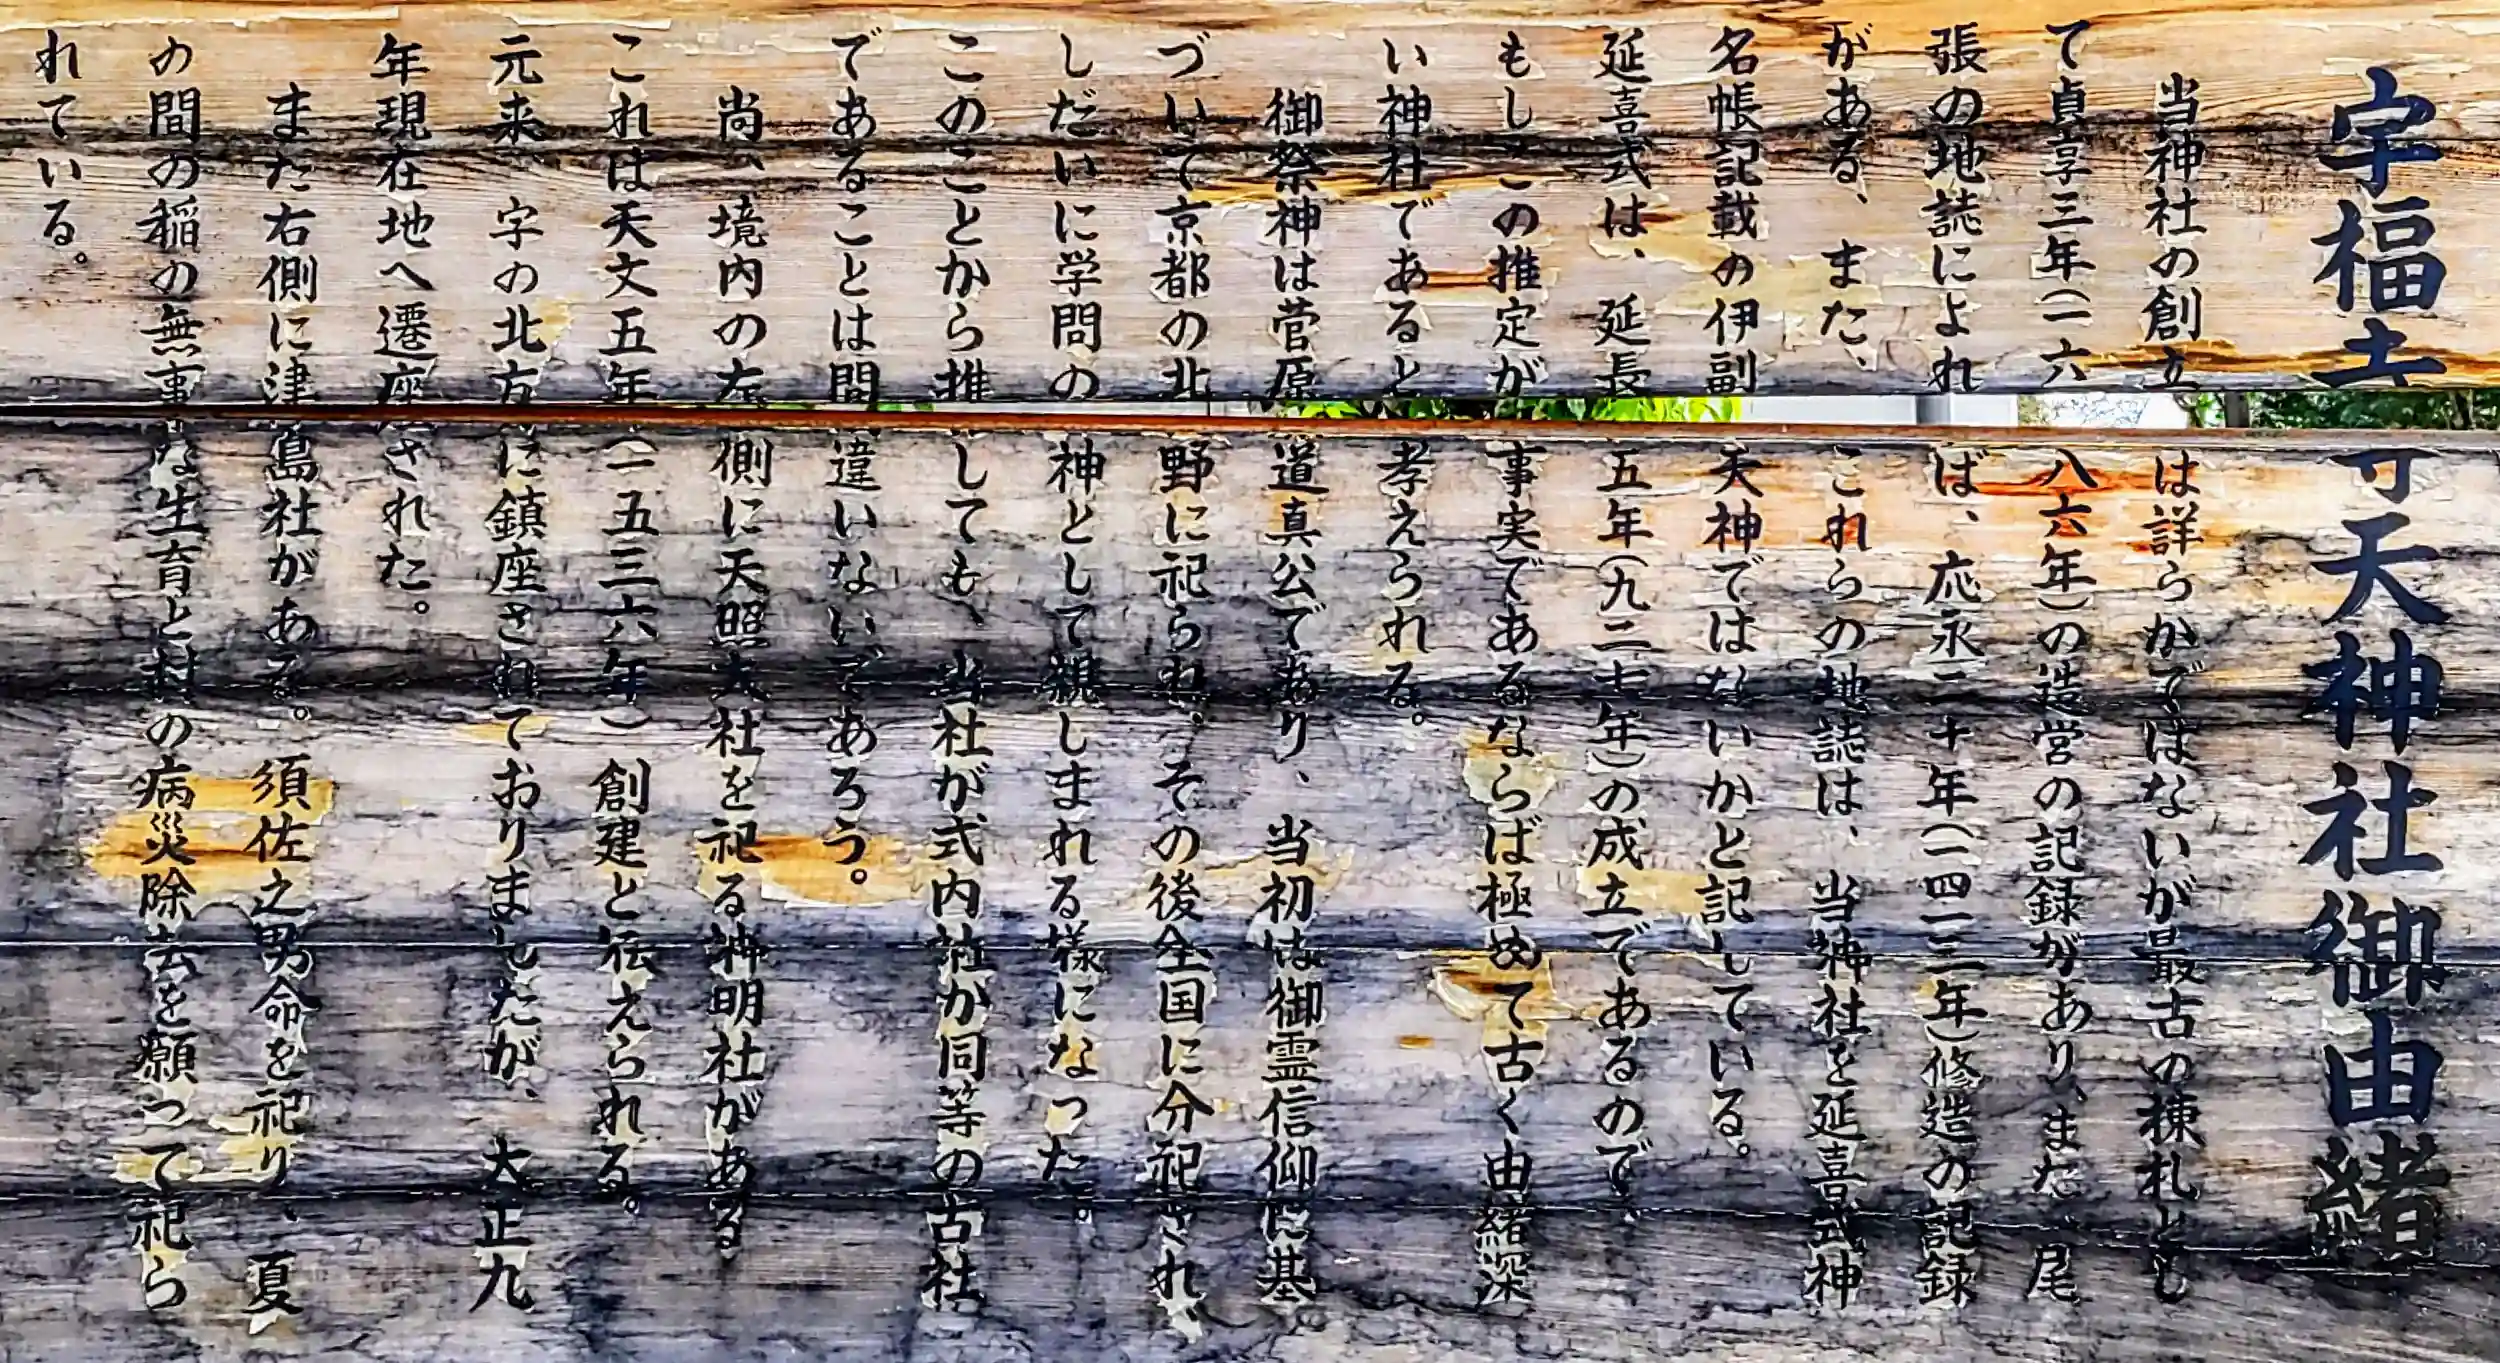 宇福寺天神社御由緒
当神社の創立は詳らかではないが最古の棟札とし
て貞享三年(一六八六年)の造営の記録があり、また、尾
張の地誌によれば、応永二十年(一四一三年)修造の記録
がある、また、これらの地誌は、当神社を延喜式神
名帳記載の伊副天神ではないかと記している。
延喜式は、延長五年(九二七年)の成立であるので、
もしこの推定が事実であるならば極めて古く由緒深
い神社であると考えられる。
御祭神は菅原道真公であり、当初は御霊信仰に基
づいて京都の北野に祀られ、その後全国に分祀され、
しだいに学問の神として親しまれる様になった。
このことから推しても、当社が式内社か同等の古社
であることは間違いないであろう。
尚、境内の左側に天照大社を祀る神明社がある
これは天文五年(一五三六年)創建と伝えられる。
元来、字の北方に鎮座されておりましたが、大正九
年現在地へ遷座された。
また右側に津島社がある。須佐之男命を祀り、夏
の間の稲の無事な生育と村の病災除去を願って祀ら
れている。